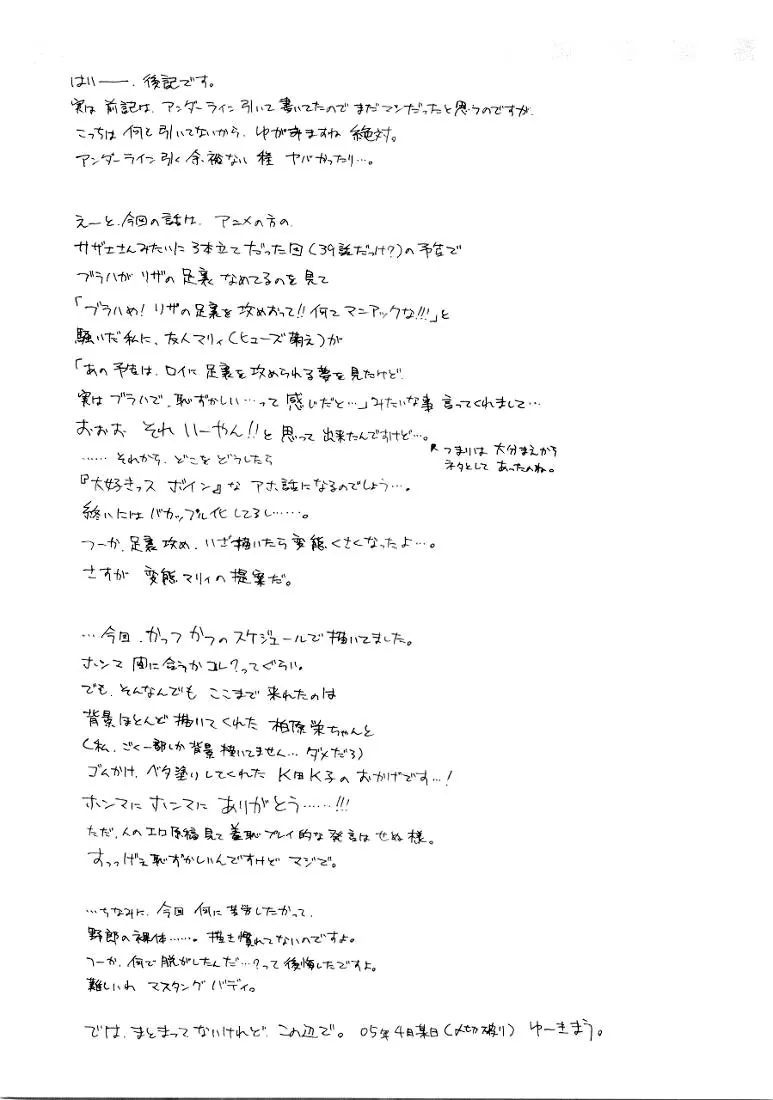 はいー―、後記です。
実は 前記は、アンダーライン引いて書いてたのでまだマシだったと思うのですが、
こっちは 何て引いてないから、ゆがみますね 絶対。
アンダーライン引く余裕ない程 ヤバかったり…。
えーと、今回の話は、アニメの方の、
サザエさんみたいに3本立てだった回(39話だっけ?)の予告で
ブラハが リザの 足裏 なめてるのを見て
「ブラハめ! リザの足裏を攻めおって!! 何てマニアックな!!!」と
騒いだ私に、友人マリィ(ヒューズ萌え)が
「あの予告は、ロイに足裏を攻められる夢を見たけど、
実は ブラハで、恥ずかしい…って 感じだと…」みたいな事 言ってくれまして…
おおお それ いーやん!!と 思って 出来たんですけど…。
つまりは 大分まえから
ネタとして あったのね。
…… それから、どこを どうしたら
『大好きっス ボイン』な アホ話になるのでしょう…。
終いには バカップル化 してるし……。
つーか、足裏攻め、いざ描いたら変態くさくなったよ…。
さすが 変態マリィの提案だ。
…今回、かっつかつのスケジュールで描いてました。
ホンマ 間に合うかコレ?ってぐらい。
でも、そんなんでも ここまで 来れたのは
背景ほとんど描いてくれた 柏原栄ちゃんと
(私、ごく一部しか背景描いてません… ダメだろ)
ゴムかけ、ベタ塗りしてくれた K田K子の おかげです…!
ホンマに ホンマに ありがとう……!!!
ただ、人のエロ原稿見て 羞恥プレイ的な 発言は せぬ様。
すっっげえ恥ずかしいんですけど マジで。
…ちなみに、今回 何に苦労したかって、
野郎の裸体……。描き慣れてないのですよ。
つーか、何で脱がしたんだ…?って後悔したですよ。
難しいわ マスタング バディ。
では、まとまってないけれど、この辺で。 05年4月某日(〆切破り) ゆーきまう。